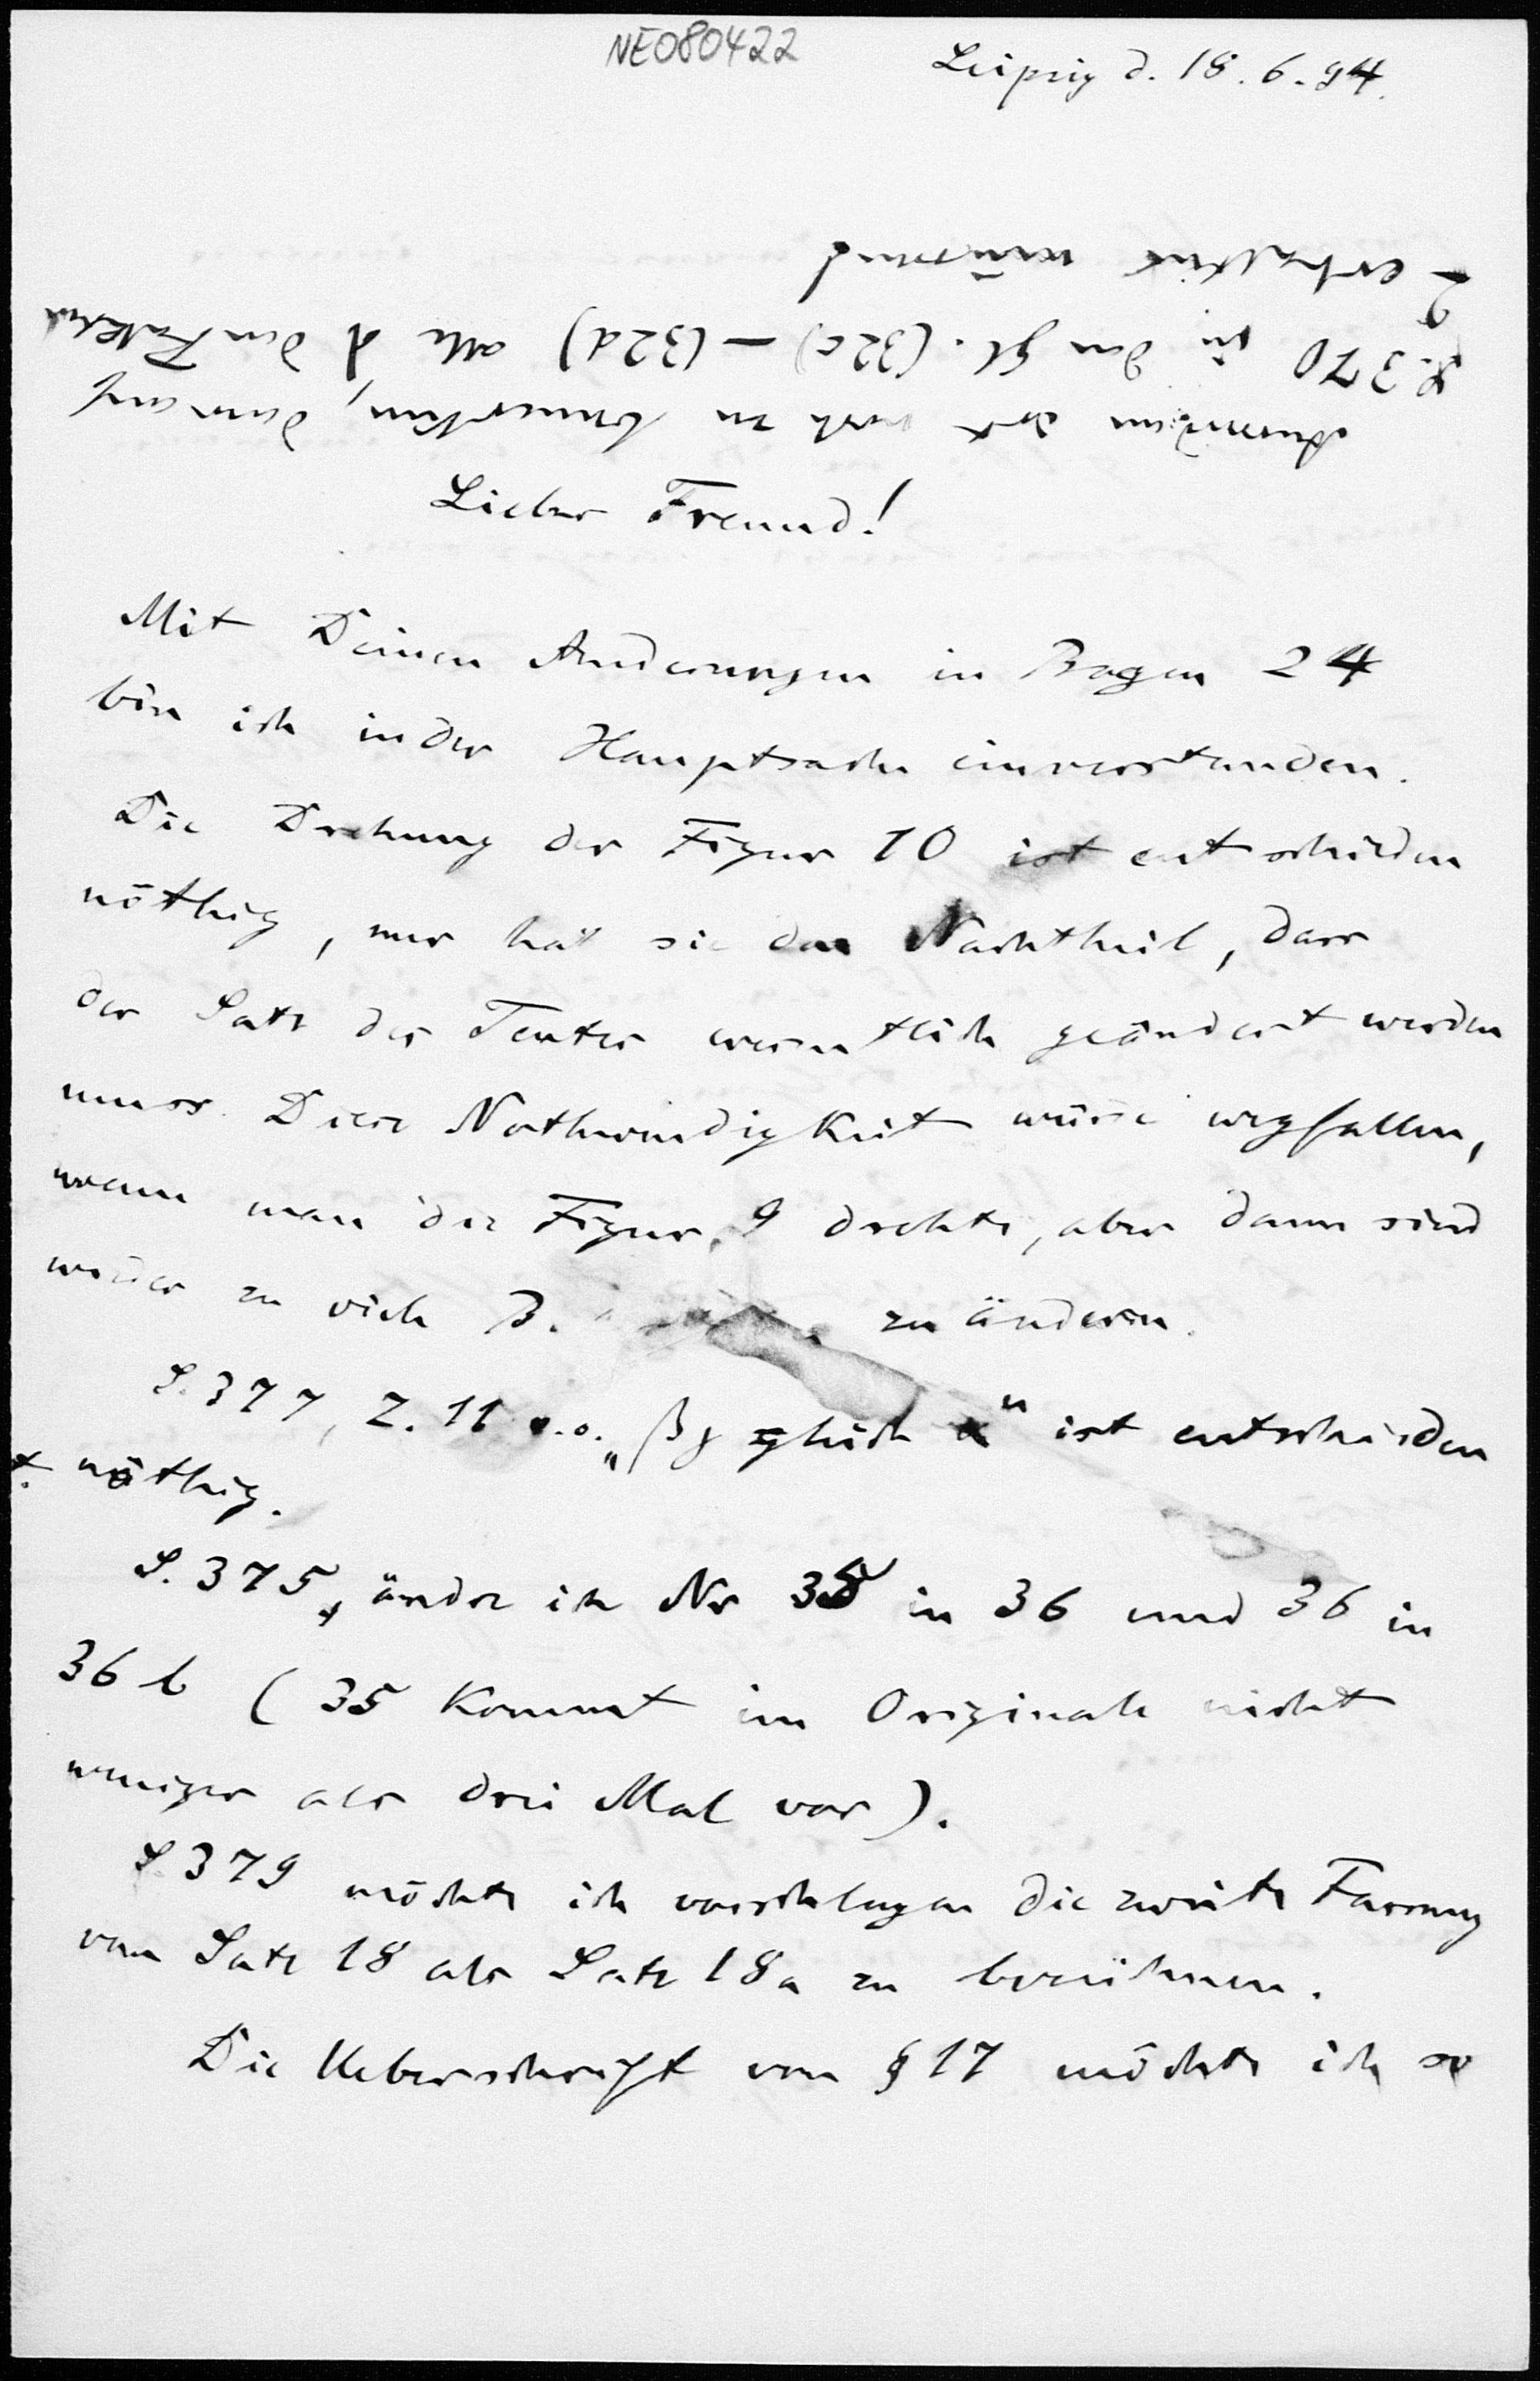 NE080422
Leipzig d. 18. 6. 94.
Ausserdem ist noch zu bemerken, dass auf
S. 370 in den Gl. (32c) – (32d) alle λ den Faktor
2 erhalten müssen
Lieber Freund!
Mit Deinen Änderungen in Bogen 24
bin ich in der Hauptsache einverstanden.
Die Drehung der Figur 10 ist entschieden
nöthig, nur hat sie den Nachtheil, dass
der Satz des Textes wesentlich geändert werden
muss. Diese Nothwendigkeit würde wegfallen,
wenn man die Figur 9 drehte, aber dann sind
wieder zu viele B. zu ändern.
S. 377, Z. 11 v.o. „βγ gleich α" ist entschieden
nöthig.
S. 375, ändre ich Nr 35 in 36 und 36 in
36 b (35 kommt im Originale nicht
weniger als drei Mal vor).
S. 379 möchte ich vorschlagen die zweite Fassung
von Satz 18 als Satz 18a zu bezeichnen.
Die Ueberschrift von § 17 möchte ich so